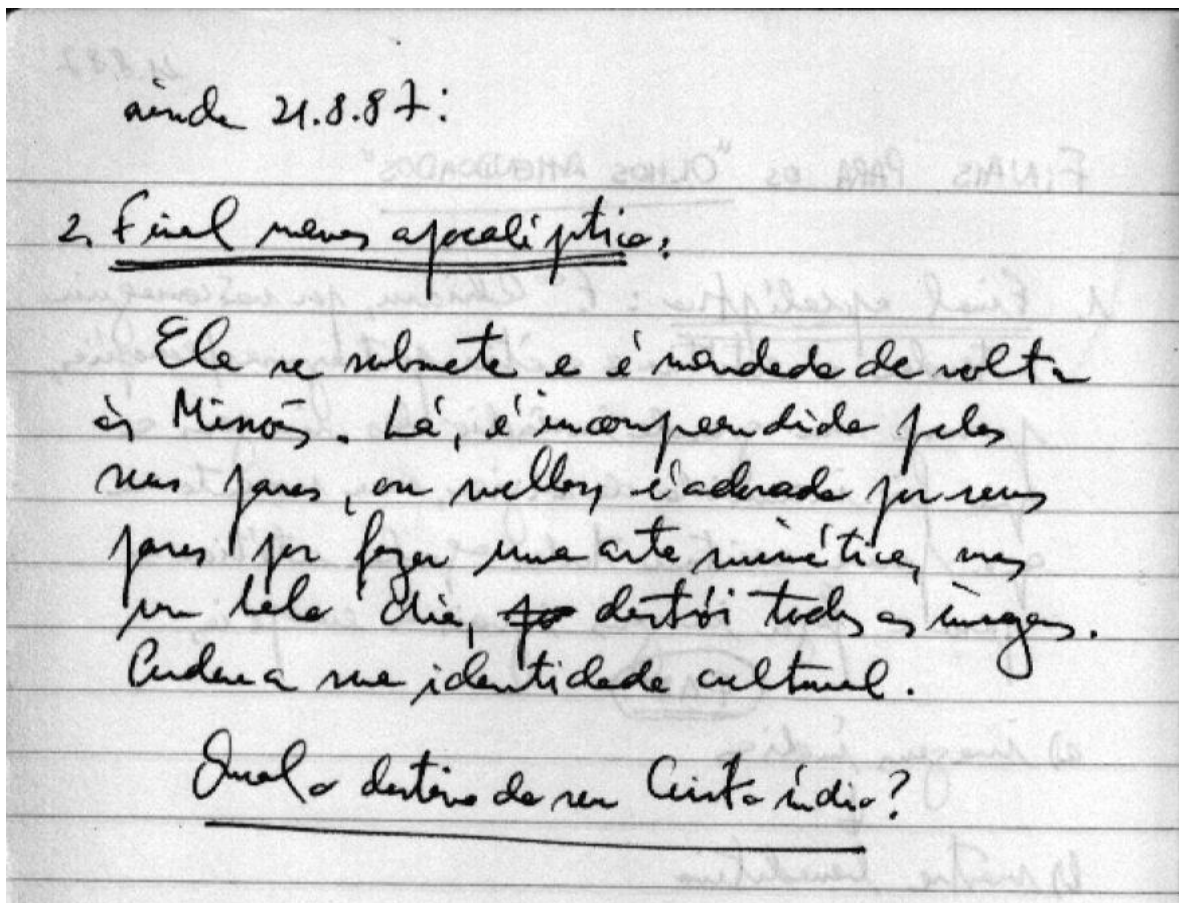 ainda 21.8.87:
2. Final menos apocalíptico:
Ele se submete e é mandado de volta
às Missões. Lá, é incompreendido pelos
seus pares, ou melhor, é adorado por seus
pares por fazer uma arte mimética, mas
um belo dia, destrói todas as imagens.
a sua identidade cultural.
Qual o destino do seu Cristo índio?
FINAIS PARA OS "OLHOS AMENDOADOS"